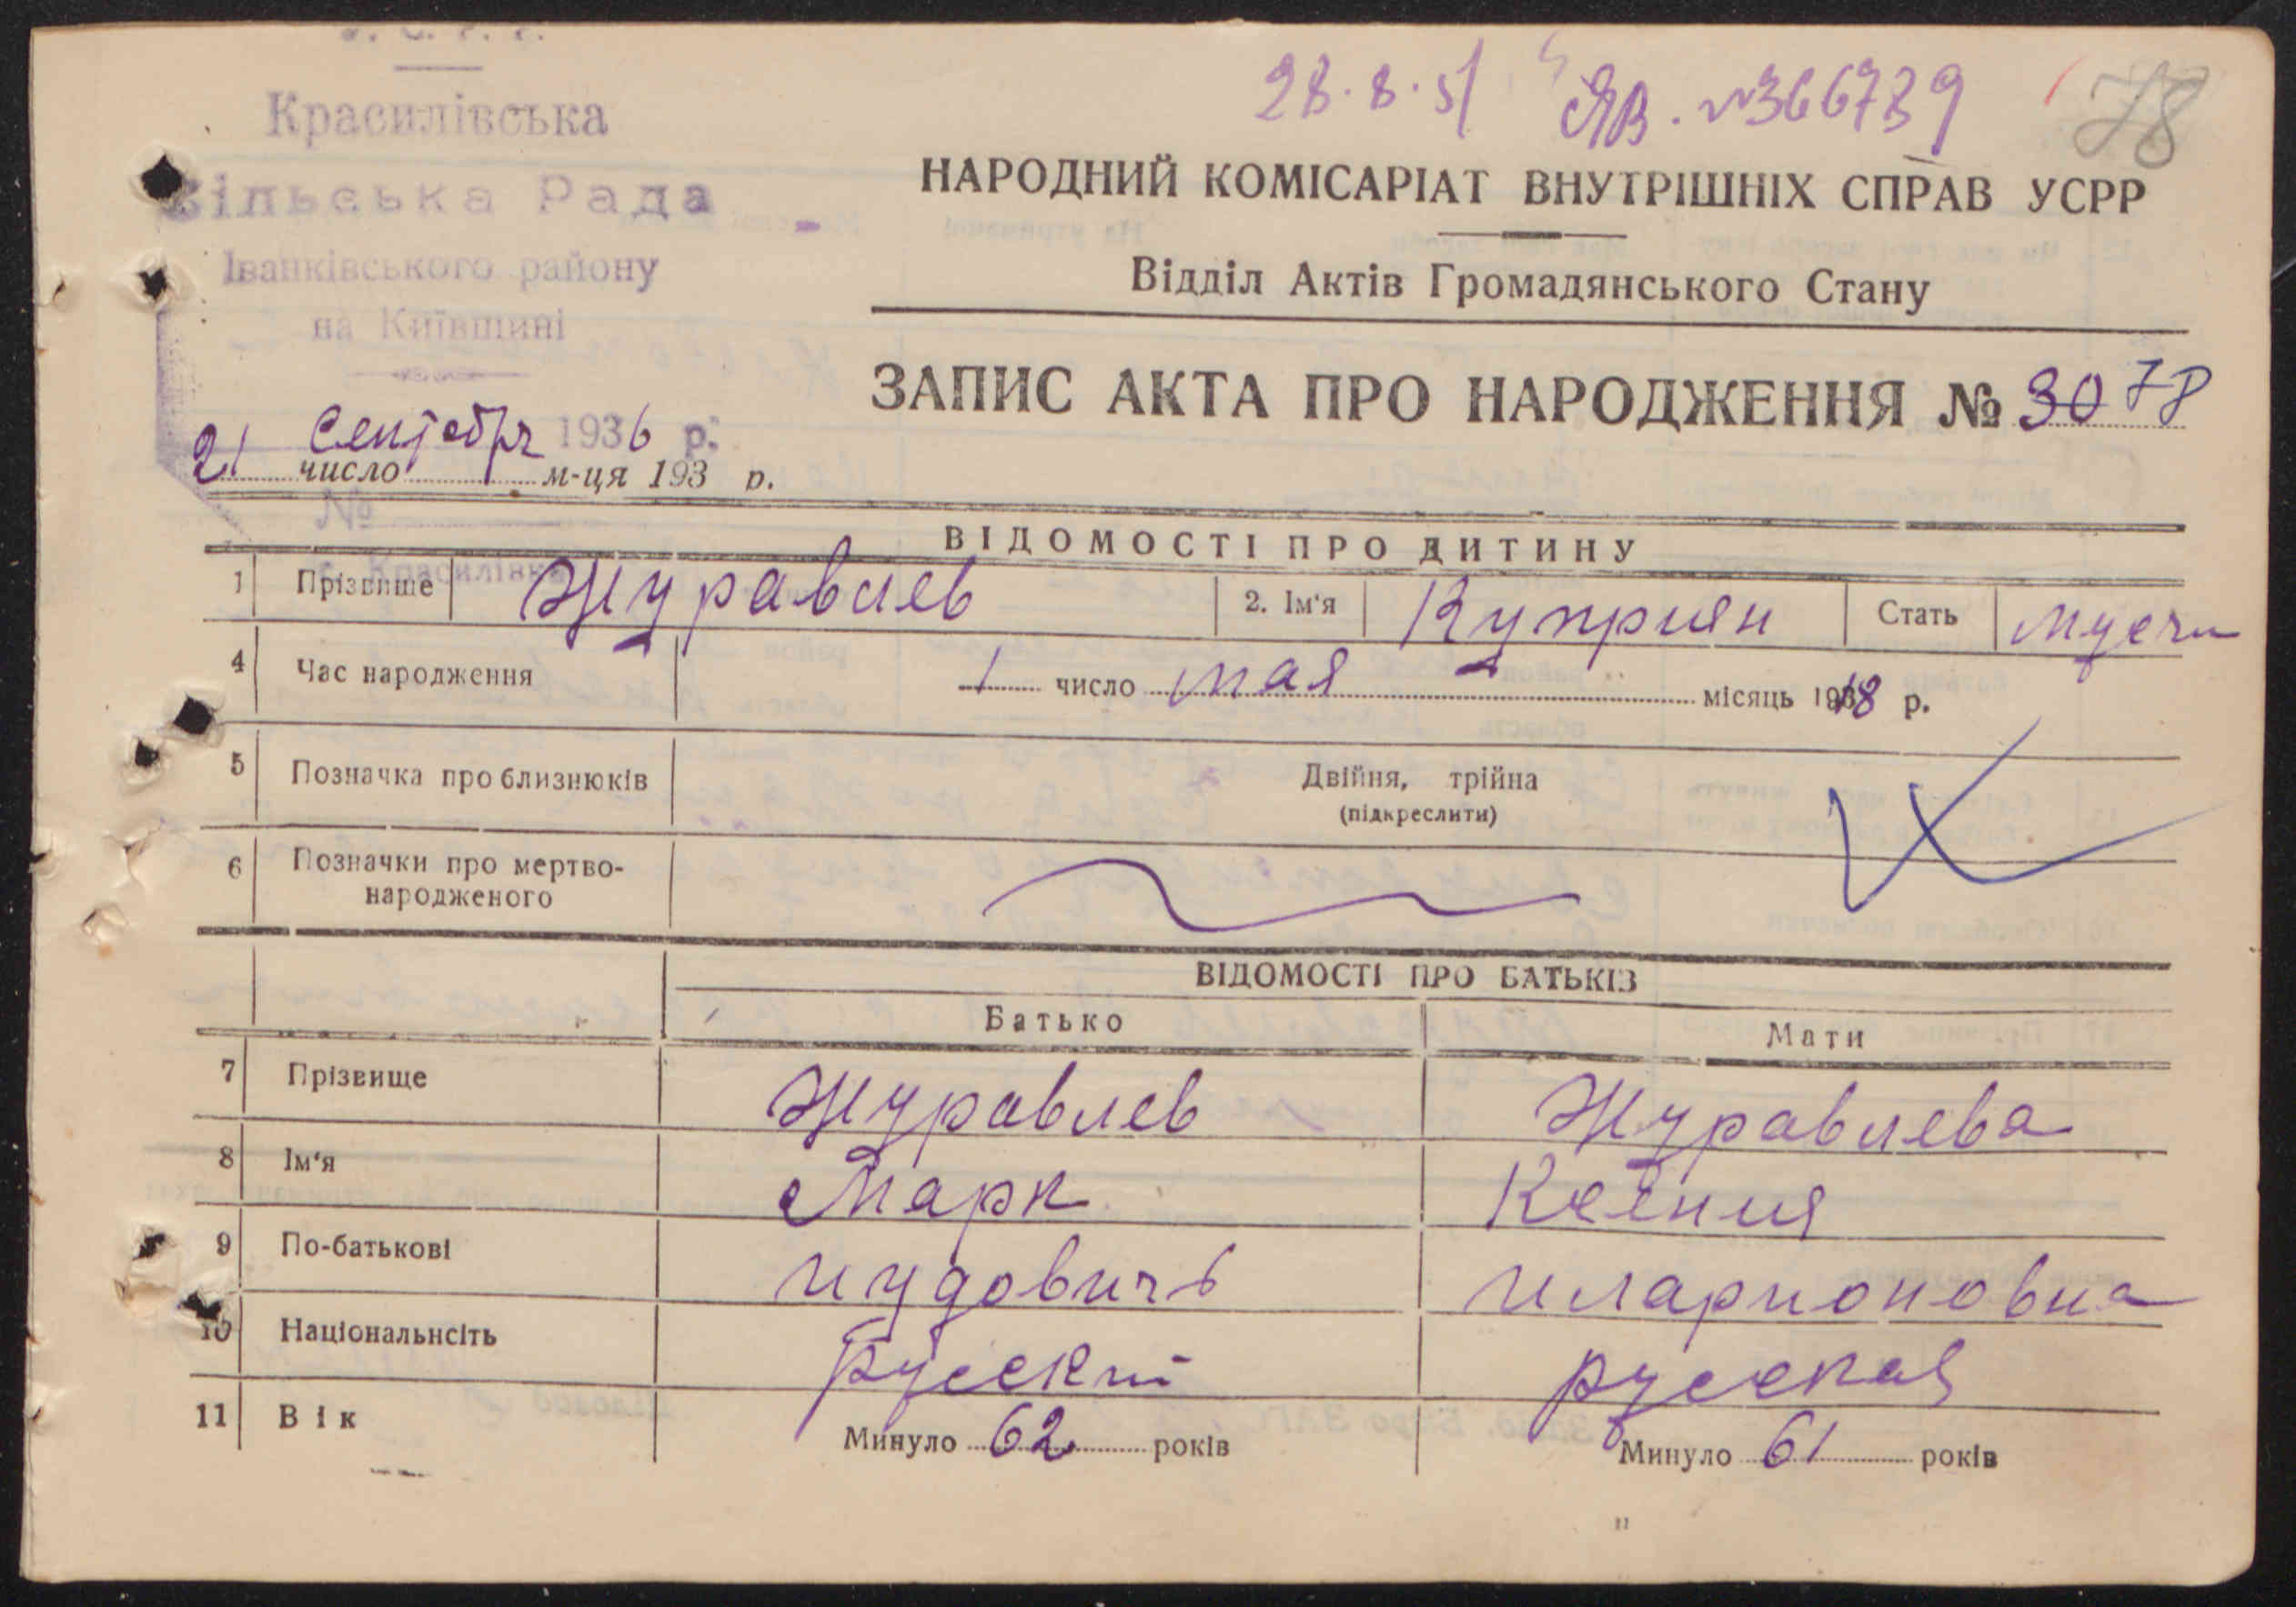 У. С. Р. Р.
Красилівська
Сільська Рада
Іванківського району
на Київщині
28.8.51 ЯВ. №366739
78
НАРОДНИЙ КОМІСАРІАТ ВНУТРІШНІХ СПРАВ УСРР
Відділ Актів Громадянського Стану
ЗАПИС АКТА ПРО НАРОДЖЕННЯ № 30 78
21 Сентебря 1936 р.
число м-ця 193 р.
№
с. Красилівка
ВІДОМОСТІ ПРО ДИТИНУ
1 Прізвище Журавлев 2. Ім'я Куприян Стать
4 Час народження 1 число мая місяць 1918 р.
5 Позначка про близнюків Двійня, трійна
(підкреслити)
6 Позначки про мертво-
народженого
ВІДОМОСТІ ПРО БАТЬКІВ
Батько Мати
7 Прізвище Журавлев Журавлева
8 Ім'я Марк Ксения
9 По-батькові Иудовичь Иларионовна
10 Національнсіть Руский руская
11 Вік Минуло 62 років Минуло 61 років